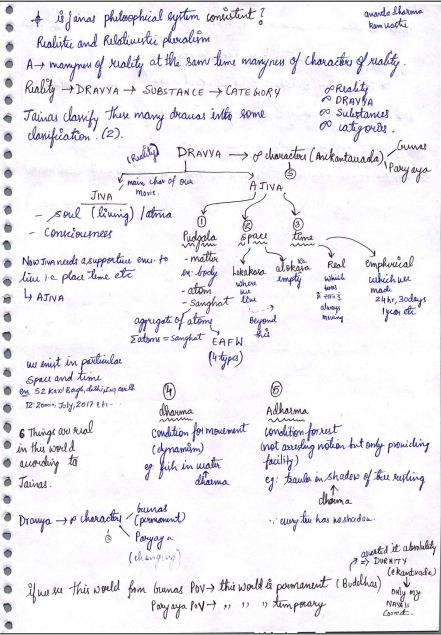 is Jainas philosophical system consistent?
ananda dharma
Realistic and Relativistic pluralism
A → manyness of reality at the same time manyness of characters of reality.
Reality → DRAVYA → SUBSTANCE → CATEGORY
∞ Reality
∞ DRAVYA
∞ Substances
∞ categories.
Jainas classify these many dravas into some
clasification. (2).
(Reality) DRAVYA → ∞ characters (Anekantavada)
Gunas
Paryaya
main char of our
movie.
AJIVA
JIVA
- soul (living) / atma
- Consciousness
① ② ③
Pudgala space time
- matter
ex: body
- atom
- Sanghat
Lokakasa
where
we
live
alokakasa
empty
Beyond
this
Real
which
was
always
moving
emphirical
which we
made
24hr, 30days
1year etc
Now Jiva needs a supportive env. to
live i.e place time etc
↳ AJIVA
aggregate of atoms
Σatoms = sanghat
EAFW
(4 types)
we exist in particular
space and time
12:20min, July, 2017 etc.
④
dharma
condition for movement
(dynamism)
eg fish in water
dharma
⑤
Adharma
condition for rest
(not arresting motion but only providing
facility)
eg: traveler in shadow of tree resting
dharma
∵ every tree has no shadow.
6 Things are real
in this world
according to
Jainas.
Dravya → ∞ character
Gunas
(permanent)
Paryaya
(changing)
asserted it absolutely
(ekantvada)
only my
NAYA is
correct.
if we see This world from Gunas POV → this world is permanent (Budelhas)
Paryaya POV → " " " temporary